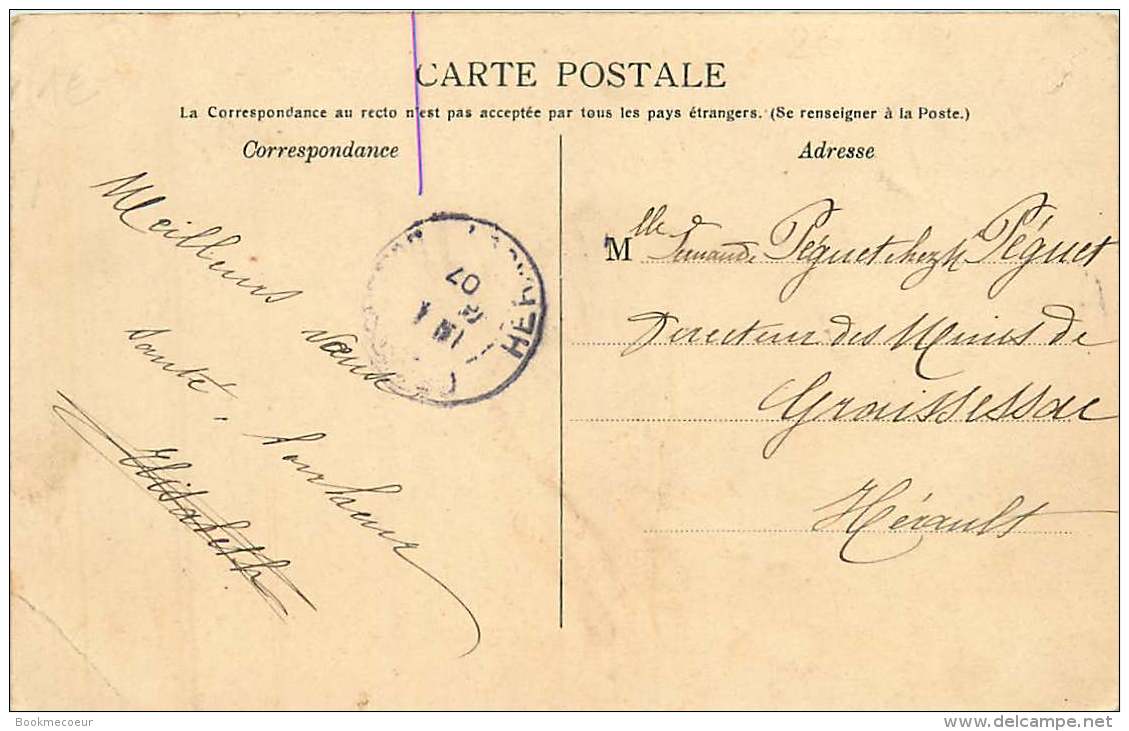 CARTE POSTALE
La Correspondance au recto n'est pas acceptée par tous les pays étrangers. (Se renseigner à la Poste.)
Correspondance
Meilleurs vœux
santé, bonheur
Elisabeth
HÉRAULT
07
Adresse
Mlle Fernande Péguet chez M Péguet
Directeur des Mines de
Graissessac
Hérault
Bookmecoeur
www.delcampe.net